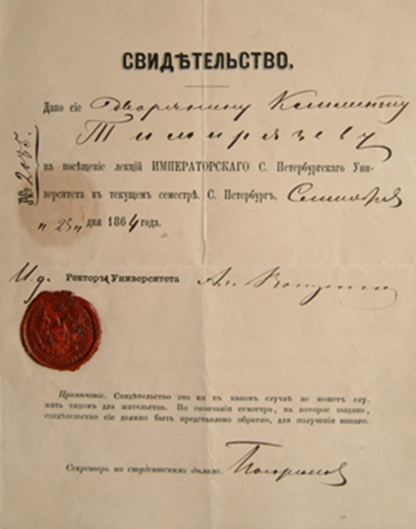 СВИДѢТЕЛЬСТВО.
Дано сіе Дворянину Клименту
Тимирязеву
на посѣщеніе лекцій ИМПЕРАТОРСКАГО С. Петербургскаго Уни-
верситета въ текущемъ семестрѣ. С. Петербургъ, Сентября
„25„ дня 1864 года.
№ 2035.
И. д. Ректора Университета
Примѣчаніе. Свидѣтельство это ни въ какомъ случаѣ не можетъ слу-
жить видомъ для жительства. По окончаніи семестра, на которое выдано,
свидѣтельство сіе должно быть представлено обратно, для полученія новаго.
Секретарь по студентскимъ дѣламъ